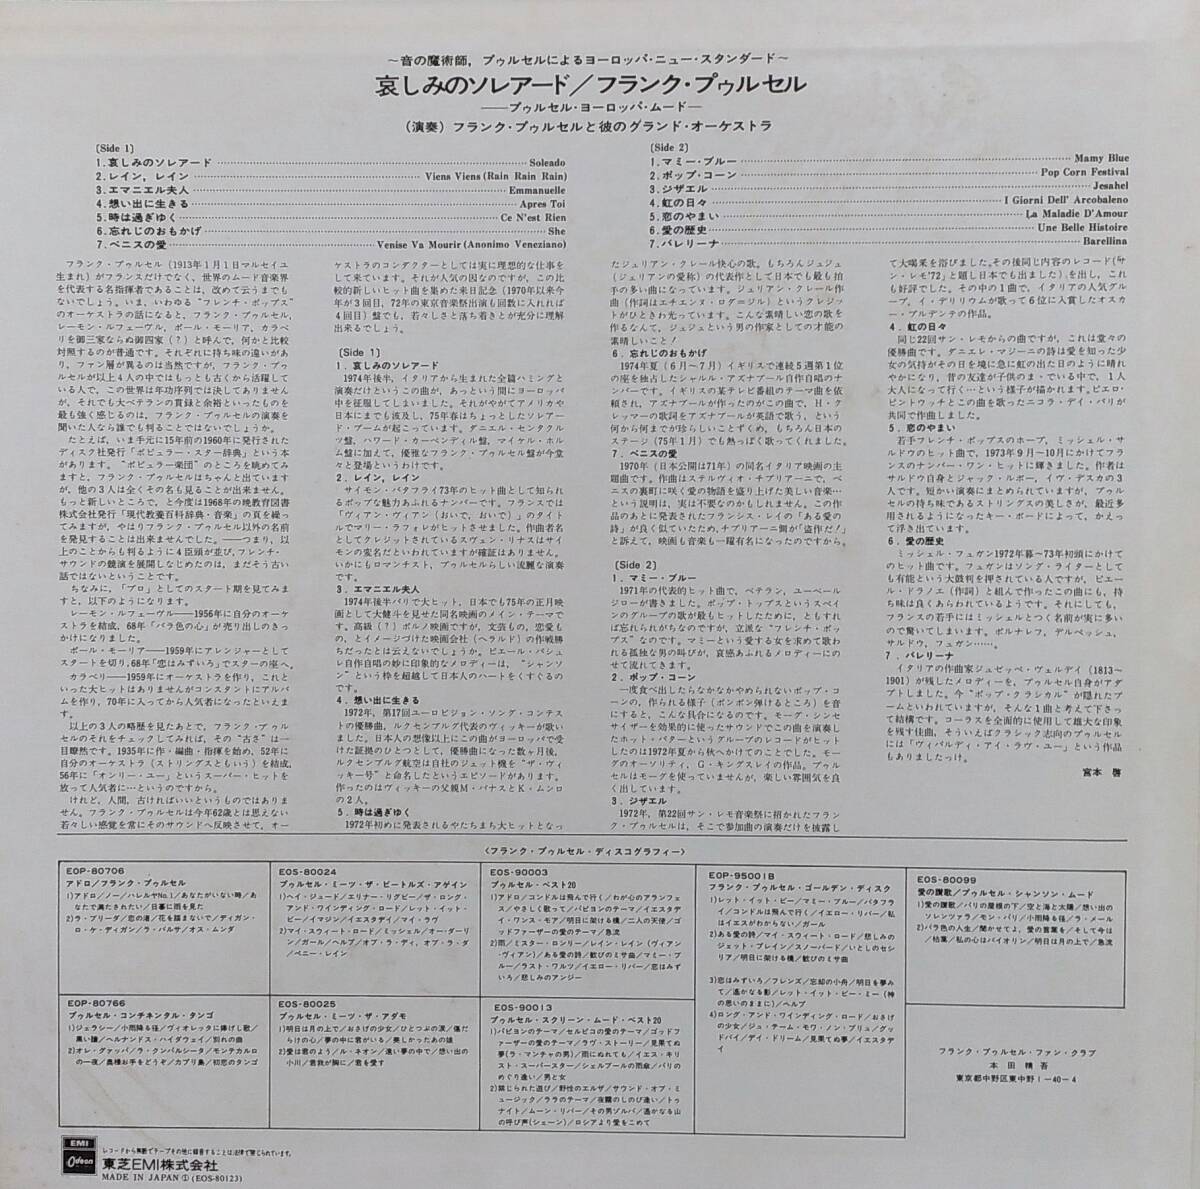 ～音の魔術師，プゥルセルによるヨーロッパ・ニュー・スタンダード～
哀しみのソレアード／フランク・プゥルセル
──プゥルセル・ヨーロッパ・ムード─
（演奏）フランク・プゥルセルと彼のグランド・オーケストラ
〔Side 1〕
1．哀しみのソレアード……Soleado
2．レイン，レイン……Viens Viens (Rain Rain Rain)
3．エマニエル夫人……Emmanuelle
4．想い出に生きる……Apres Toi
5．時は過ぎゆく……Ce N'est Rien
6．忘れじのおもかげ……She
7．ベニスの愛……Venise Va Mourir (Anonimo Veneziano)
〔Side 2〕
1．マミー・ブルー……Mamy Blue
2．ポップ・コーン……Pop Corn Festival
3．ジザエル……Jesahel
4．虹の日々……I Giorni Dell' Arcobaleno
5．恋のやまい……La Maladie D'Amour
6．愛の歴史……Une Belle Histoire
7．バレリーナ……Barellina
フランク・プゥルセル（1913年1月1日マルセイユ
生まれ）がフランスだけでなく、世界のムード音楽界
を代表する名指揮者であることは、改めて云うまでも
ないでしょう。いま、いわゆる"フレンチ・ポップス"
のオーケストラの話になると、フランク・プゥルセル、
レーモン・ルフェーヴル、ポール・モーリア、カラベ
リを御三家ならぬ御四家（？）と呼んで、何かと比較
対照するのが普通です。それぞれに持ち味の違いがあ
り、ファン層が異るのは当然ですが、フランク・プゥ
ルセルが以上4人の中ではもっとも古くから活躍して
いる人で、この世界は年功序列では決してありません
が、それでも大ベテランの貫録と余裕といったものを
最も強く感じるのは、フランク・プゥルセルの演奏を
聞いた人なら誰でも判ることではないでしょうか。
たとえば、いま手元に15年前の1960年に発行された
ディスク社発行「ポピュラー・スター辞典」という本
があります。"ポピュラー楽団"のところを眺めてみ
ますと、フランク・プゥルセルはちゃんと出ています
が、他の3人は全くその名も見ることが出来ません。
もっと新しいところで、と今度は1968年の晩教育図書
株式会社発行「現代教養百科辞典・音楽」の頁を繰っ
てみますが、やはりフランク・プゥルセル以外の名前
を発見することは出来ませんでした。──つまり、以
上のことからも判るように4臣頭が並び、フレンチ・
サウンドの競演を展開しなじめたのは、まだそう古い
話ではないということです。
ちなみに、「プロ」としてのスタート期を見てみま
すと、以下のようになります。
レーモン・ルフェーヴル──1956年に自分のオーケ
ストラを結成、68年「バラ色の心」が売り出しのきっ
かけになりました。
ポール・モーリア──1959年にアレンジャーとして
スタートを切り、68年「恋はみずいろ」でスターの座へ。
カラベリ──1959年にオーケストラを作り、これと
いった大ヒットはありませんがコンスタントにアルバ
ムを作り、70年に入ってから人気者になったといえま
す。
以上の3人の略歴を見たあとで、フランク・プゥル
セルのそれをチェックしてみれば、その"古さ"は一
目瞭然です。1935年に作・編曲・指揮を始め、52年に
自分のオーケストラ（ストリングスともいう）を結成、
56年に「オンリー・ユー」というスーパー・ヒットを
放って人気者に…というのですから。
けれど、人間、古ければいいというものではありま
せん。フランク・プゥルセルは今年62歳とは思えない
若々しい感覚を常にそのサウンドへ反映させて、オー
ケストラのコンダクターとしては実に理想的な仕事を
して来ています。それが人気の因なのですが、この比
較的新しいヒット曲を集めた来日記念（1970年以来今
年が3回目、72年の東京音楽祭出演も回数に入れれば
4回目）盤でも、若々しさと落ち着きとが充分に理解
出来るでしょう。
〔Side 1〕
1．哀しみのソレアード
1974年後半、イタリアから生まれた全篇ハミングと
演奏だけというこの曲が、あっという間にヨーロッパ
中を征服してしまいました。それがやがてアメリカや
日本にまでも波及し、75年春はちょっとしたソレアー
ド・ブームが起こっています。ダニエル・センタクル
ツ盤、ハワード・カーペンディル盤、マイケル・ホル
ム盤に加えて、優雅なフランク・プゥルセル盤が今堂
々と登場というわけです。
2．レイン，レイン
サイモン・バタフライ73年のヒット曲として知られ
るポップな魅力あふれるナンバーです。フランスでは
「ヴィアン・ヴィアン（おいで、おいで）」のタイト
ルでマリー・ラフォレがヒットさせました。作曲者名
としてクレジットされているスヴェン・リナスはサイ
モンの変名だといわれていますが確証はありません。
いかにもロマンチスト、プゥルセルらしい流麗な演奏
です。
3．エマニエル夫人
1974年後半パリで大ヒット、日本でも75年の正月映
画として大健斗を見せた同名映画のメイン・テーマで
す。高級（？）ポルノ映画ですが、文芸もの、恋愛も
の、とイメージづけた映画会社（ヘラルド）の作戦勝
ちだったとは云えないでしょうか。ピエール・バシュ
レ自作自唱の妙に印象的なメロディーは、"シャンソ
ン"という枠を超越して日本人のハートをくすぐるの
です。
4．想い出に生きる
1972年、第17回ユーロビジョン・ソング・コンテス
トの優勝曲、ルクセンブルグ代表のヴィッキーが歌い
ました。日本人の想像以上にこの曲がヨーロッパで受
けた証拠のひとつとして、優勝曲になった数ヶ月後、
ルクセンブルグ航空は自社のジェット機を"ザ・ヴィ
ッキー号"と命名したというエピソードがあります。
作ったのはヴィッキーの父親M・パナスとK・ムンロ
の2人。
5．時は過ぎゆく
1972年初めに発表されるやたちまち大ヒットとなっ
たジュリアン・クレール快心の歌。もちろんジュジュ
（ジュリアンの愛称）の代表作として日本でも最も拍
手の多い曲になっています。ジュリアン・クレール作
曲（作詞はエチエンヌ・ロダ＝ジル）というクレジッ
トがひときわ光っています。こんな素晴しい恋の歌を
作るなんて、ジュジュという男の作家としての才能の
素晴しいこと！
6．忘れじのおもかげ
1974年夏（6月〜7月）イギリスで連続5週第1位
の座を独占したシャルル・アズナブール自作自唱のナ
ンバーです。イギリスの某テレビ番組のテーマ曲を依
頼され、アズナブールが作ったのがこの曲で、H・ク
レッマーの歌詞をアズナブールが英語で歌う、という
何から何までが珍らしいことずくめ、もちろん日本の
ステージ（75年1月）でも熱っぽく歌ってくれました。
7．ベニスの愛
1970年（日本公開は71年）の同名イタリア映画の主
題曲です。作曲はステルヴィオ・チプリアーニで、ベ
ニスの裏町に咲く愛の物語を盛り上げた美しい音楽…
という説明は、実は不要なのかもしれません。この作
品のあとに発表されたフランシス・レイの「ある愛の
詩」が良く似ていたため、チプリアーニ側が「盗作だ！」
と訴えて、映画も音楽も一躍有名になったのですから。
〔Side 2〕
1．マミー・ブルー
1971年の代表的ヒット曲で、ベテラン、ユーベール・
ジローが書きました。ポップ・トップスというスペイ
ンのグループの歌が最もヒットしたために、ともすれ
ば忘れられがちなのですが、立派な"フレンチ・ポッ
プス"なのです。マミーという愛する女を求めて歌わ
れる孤独な男の叫びが、哀感あふれるメロディーにの
せて流れてきます。
2．ポップ・コーン
一度食べ出したらなかなかやめられないポップ・コ
ーンの、作られる様子（ポンポン弾けるところ）を音
にすると、こんな具合になるのです。モーグ・シンセ
サイザーを効果的に使ったサウンドでこの曲を演奏し
たホット・バターというグループのレコードがヒット
したのは1972年夏から秋へかけてのことでした。モー
グのオーソリティ、G・キングスレイの作品。プゥル
セルはモーグを使っていませんが、楽しい雰囲気を良
く出しています。
3．ジザエル
1972年、第22回サン・レモ音楽祭に招かれたフラン
ク・プゥルセルは、そこで参加曲の演奏だけを披露し
て大喝采を浴びました。その後同じ内容のレコード（「サ
ン・レモ'72」と題し日本でも出ました）を出し、これ
も好評でした。その中の1曲で、イタリアの人気グル
ープ、イ・デリリウムが歌って6位に入賞したオスカ
ー・プルデンテの作品。
4．虹の日々
同じ22回サン・レモからの曲ですが、これは堂々の
優勝曲です。ダニエレ・マジーニの詩は愛を知った少
女の気持がその日を境に急に虹の出た日のように晴れ
やかになり、昔の友達が子供のまゝでいる中で、1人
大人になって行く…という様子が描かれます。ピエロ・
ピントウッチとこの曲を歌ったニコラ・ディ・バリが
共同で作曲しました。
5．恋のやまい
若手フレンチ・ポップスのホープ、ミッシェル・サ
ルドウのヒット曲で、1973年9月〜10月にかけてフラ
ンスのナンバー・ワン・ヒットに輝きました。作者は
サルドウ自身とジャック・ルボー、イヴ・デスカの3
人です。短かい演奏にまとめられていますが、プゥル
セルの持ち味であるストリングスの美しさが、最近多
用されるようになったキー・ボードによって、かえっ
て浮き出ています。
6．愛の歴史
ミッシェル・フュガン1972年暮〜73年初頭にかけて
のヒット曲です。フュガンはソング・ライターとして
も有能という大鼓判を押されている人ですが、ピエー
ル・ドラノエ（作詞）と組んで作ったこの曲にも、持
ち味は良くあらわれているようです。それにしても、
フランスの若手にはミッシェルとつく名前が実に多い
ので驚いてしまいます。ポルナレフ、デルペッシュ、
サルドウ、フュガン……。
7．バレリーナ
イタリアの作曲家ジュゼッペ・ヴェルディ（1813〜
1901）が残したメロディーを、プゥルセル自身がアダ
プトしました。今"ポップ・クラシカル"が隠れたブ
ームといわれていますが、そんな1曲と考えて下さっ
て結構です。コーラスを全面的に使用して雄大な印象
を残す佳曲、そういえばクラシック志向のプゥルセル
には「ヴィバルディ・アイ・ラヴ・ユー」という作品
もありましたっけ。
宮本 啓
〈フランク・プゥルセル・ディスコグラフィー〉
EOP-80706
アドロ／フランク・プゥルセル
1）アドロ／ノー／ハレルヤNo.1／あなたがいない時／あ
なたで満たされたい／日暮に雨を見た
2）ラ・ブリーダ／恋の道／花を踏まないで／ディガン・
ロ・ケ・ディガン／ラ・バルサ／オス・ムンダ
EOS-80024
プゥルセル・ミーツ・ザ・ビートルズ・アゲイン
1）ヘイ・ジュード／エリナー・リグビー／ザ・ロング・
アンド・ワインディング・ロード／レット・イット・
ビー／イマジン／イエスタデイ／マイ・ラヴ
2）マイ・スウィート・ロード／ミッシェル／オー・ダーリ
ン／ガール／ヘルプ／オブ・ラ・ディ、オブ・ラ・ダ
／ペニー・レイン
EOS-90003
プゥルセル・ベスト20
1）アドロ／コンドルは飛んで行く／わが心のアランフェ
ス／やさしく歌って／パピヨンのテーマ／イエスタデ
イ・ワンス・モア／明日に架ける橋／二人の天使／ゴ
ッドファーザーの愛のテーマ／急流
2）雨／ミスター・ロンリー／レイン・レイン（ヴィアン
・ヴィアン）／ある愛の詩／歓びのミサ曲／マミー・ブ
ルー／ラスト・ワルツ／イエロー・リバー／恋はみず
いろ／悲しみのアンジー
EOP-95001B
フランク・プゥルセル・ゴールデン・ディスク
1）レット・イット・ビー／マミー・ブルー／バタフラ
イ／コンドルは飛んで行く／イエロー・リバー／私
はイエスがわからない／ガール
2）ある愛の詩／マイ・スウィート・ロード／悲しみの
ジェット・プレイン／スノーバード／いとしのセシ
リア／明日に架ける橋／歓びのミサ曲
3）恋はみずいろ／フレンズ／忘却の小舟／明日を夢み
て／遙かなる影／レット・イット・ビー・ミー（神
の思いのままに）／ヘルプ
4）ロング・アンド・ワインディング・ロード／おさげ
の少女／ジュ・テーム・モワ・ノン・プリュ／グッ
ドバイ／デイ・ドリーム／見果てぬ夢／イエスタデ
イ
EOS-80099
愛の讃歌／プゥルセル・シャンソン・ムード
1）愛の讃歌／パリの屋根の下／空と海と太陽／想い出の
ソレンツァラ／モン・パリ／小雨降る径／ラ・メール
2）バラ色の人生／聞かせてよ、愛の言葉を／そして今は
／枯葉／私の心はバイオリン／明日は月の上で／急流
EOP-80766
プゥルセル・コンチネンタル・タンゴ
1）ジェラシー／小雨降る径／ヴィオレッタに捧げし歌／
黒い瞳／ヘルナンドス・ハイダウェイ／別れの曲
2）オレ・グァッパ／ラ・クンパルシータ／モンテカルロ
の一夜／奥様お手をどうぞ／カプリ島／初恋のタンゴ
EOS-80025
プゥルセル・ミーツ・ザ・アダモ
1）明日は月の上で／おさげの少女／ひとつぶの涙／傷だ
らけの心／夢の中に君がいる／美しかったあの頃
2）愛は君のよう／ル・ネオン／遠い夢の中で／想い出の
小川／君我が胸に／君を愛す
EOS-90013
プゥルセル・スクリーン・ムード・ベスト20
1）パピヨンのテーマ／セルピコの愛のテーマ／ゴッドフ
ァーザーの愛のテーマ／ラヴ・ストーリー／見果てぬ
夢（ラ・マンチャの男）／雨にぬれても／イエス・キリ
スト・スーパースター／シェルブールの雨傘／パリの
めぐり逢い／男と女
2）禁じられた遊び／野性のエルザ／サウンド・オブ・ミ
ュージック／ララのテーマ／夜霧のしのび逢い／トゥ
ナイト／ムーン・リバー／その男ゾルバ／遙かなる山
の呼び声（シェーン）／ロシアより愛をこめて
フランク・プゥルセル・ファン・クラブ
本田精吾
東京都中野区東中野1-40-4
EMI
Odeon
レコードから無断でテープその他に録音することは法律で禁じられています。
東芝EMI株式会社
MADE IN JAPAN ① (EOS-80123)